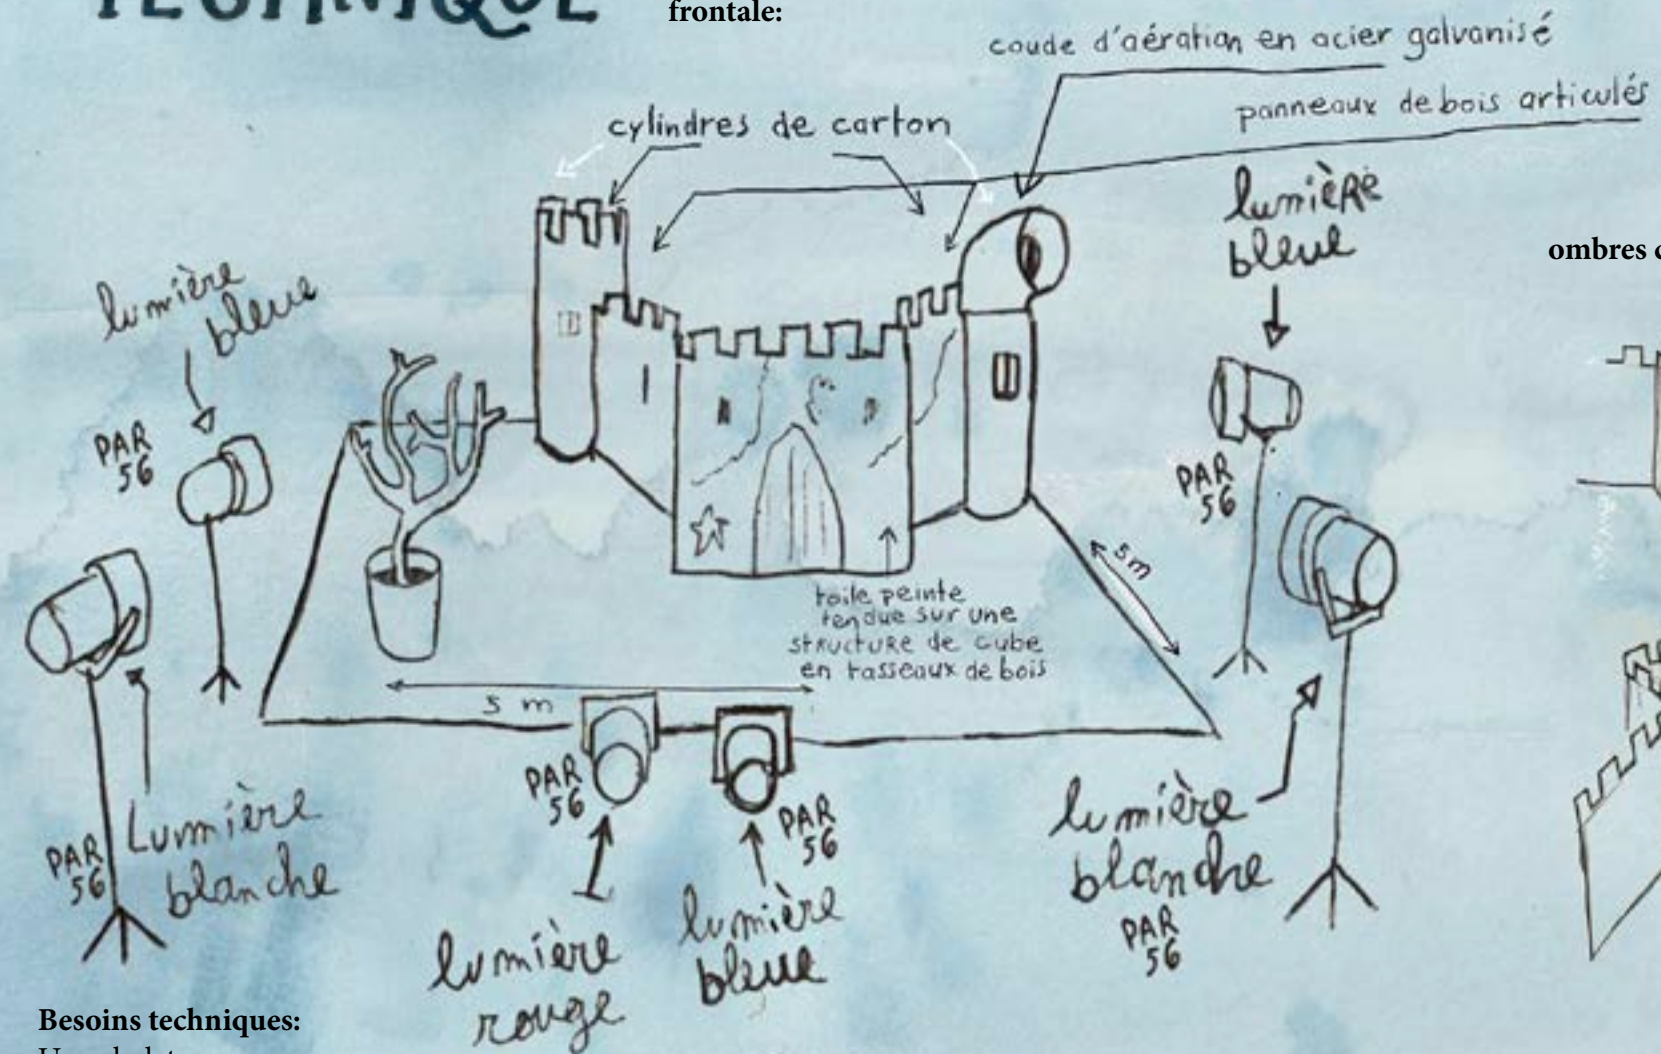 TECHNIQUE
frontale:
coude d'aération en acier galvanisé
panneaux de bois articulés
cylindres de carton
lumière
bleue
ombres
lumière
bleue
PAR
56
PAR
56
5m
toile peinte
tendue sur une
structure de cube
en tasseaux de bois
5 m
PAR
56
PAR
56
Lumière
blanche
PAR
56
lumière
blanche
PAR
56
lumière
rouge
lumière
bleue
Besoins techniques: